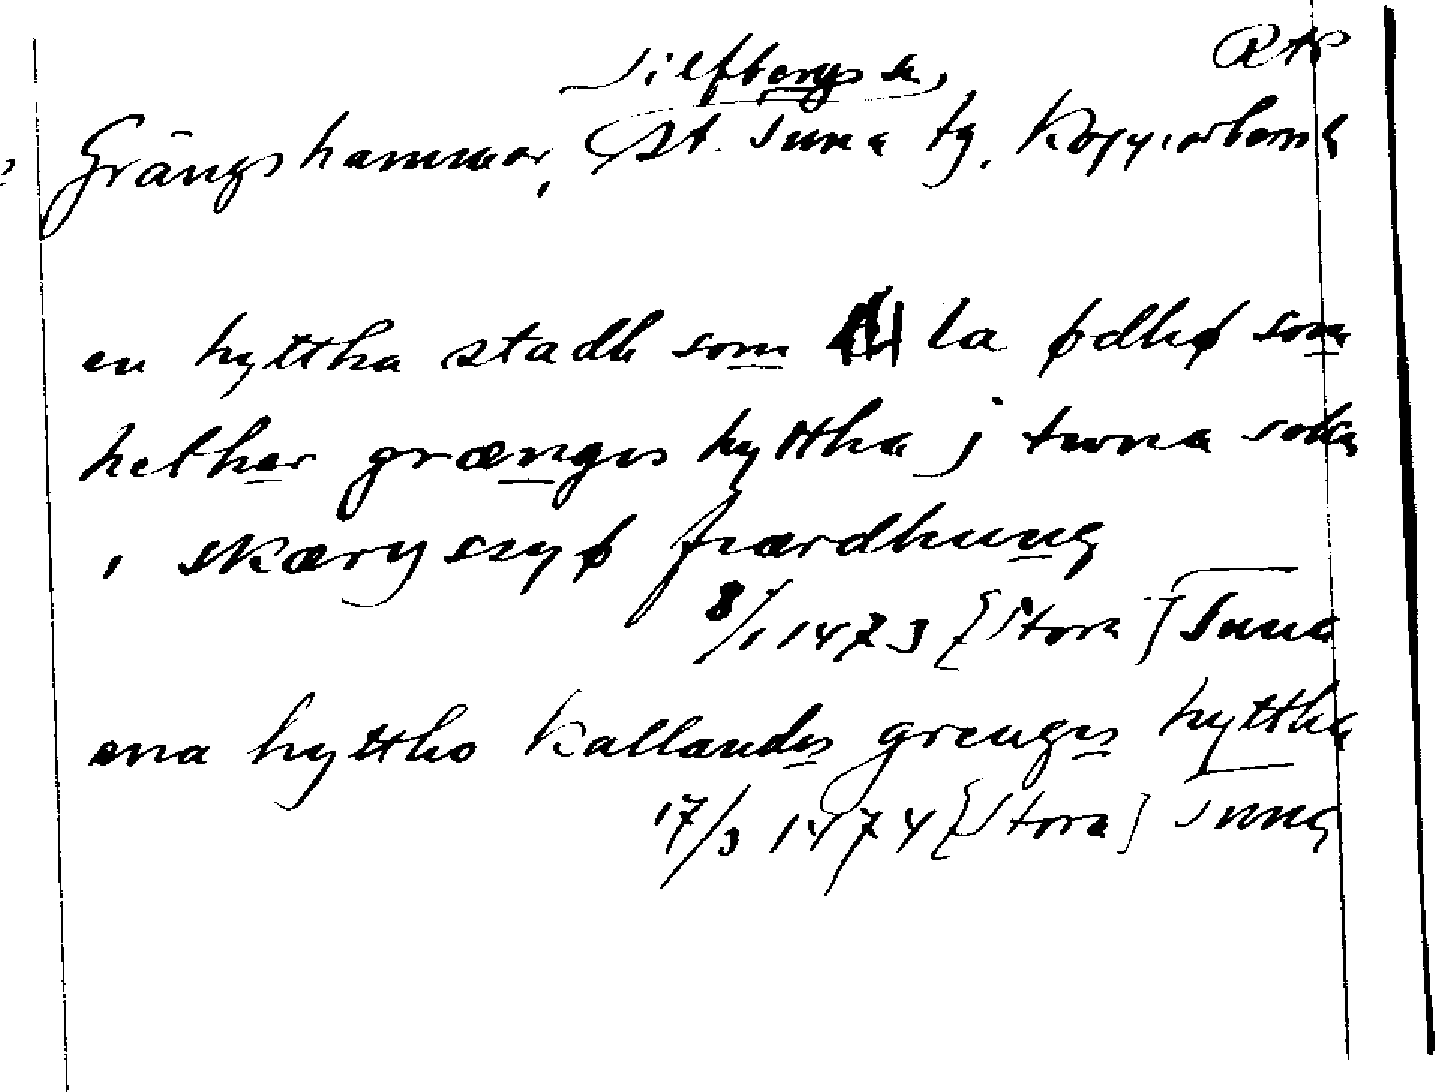 RAP
Silfbergs sn,
Grängshammar, St. Tuna tg. Kopparbergs
en hyttha stadh som la ødhø som
hether grænges hyttha j twna sokn
i skærysyø fiærdhung
8/1 1473 [Stora] Tuna
ena hyttho kallandes grenges hyttha
17/3 1474 [Stora] Tuna